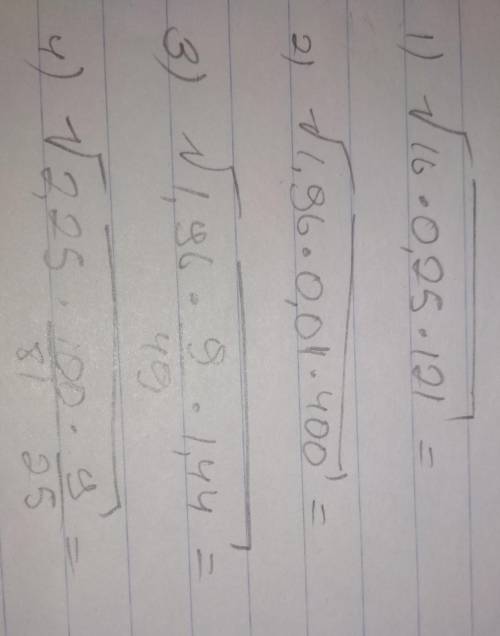 1) √16·0,25·121 =
2) √1,96·0,01·400 =
3) √1,96·9/49·1,44 =
4) √2,25·100/81·9/25 =